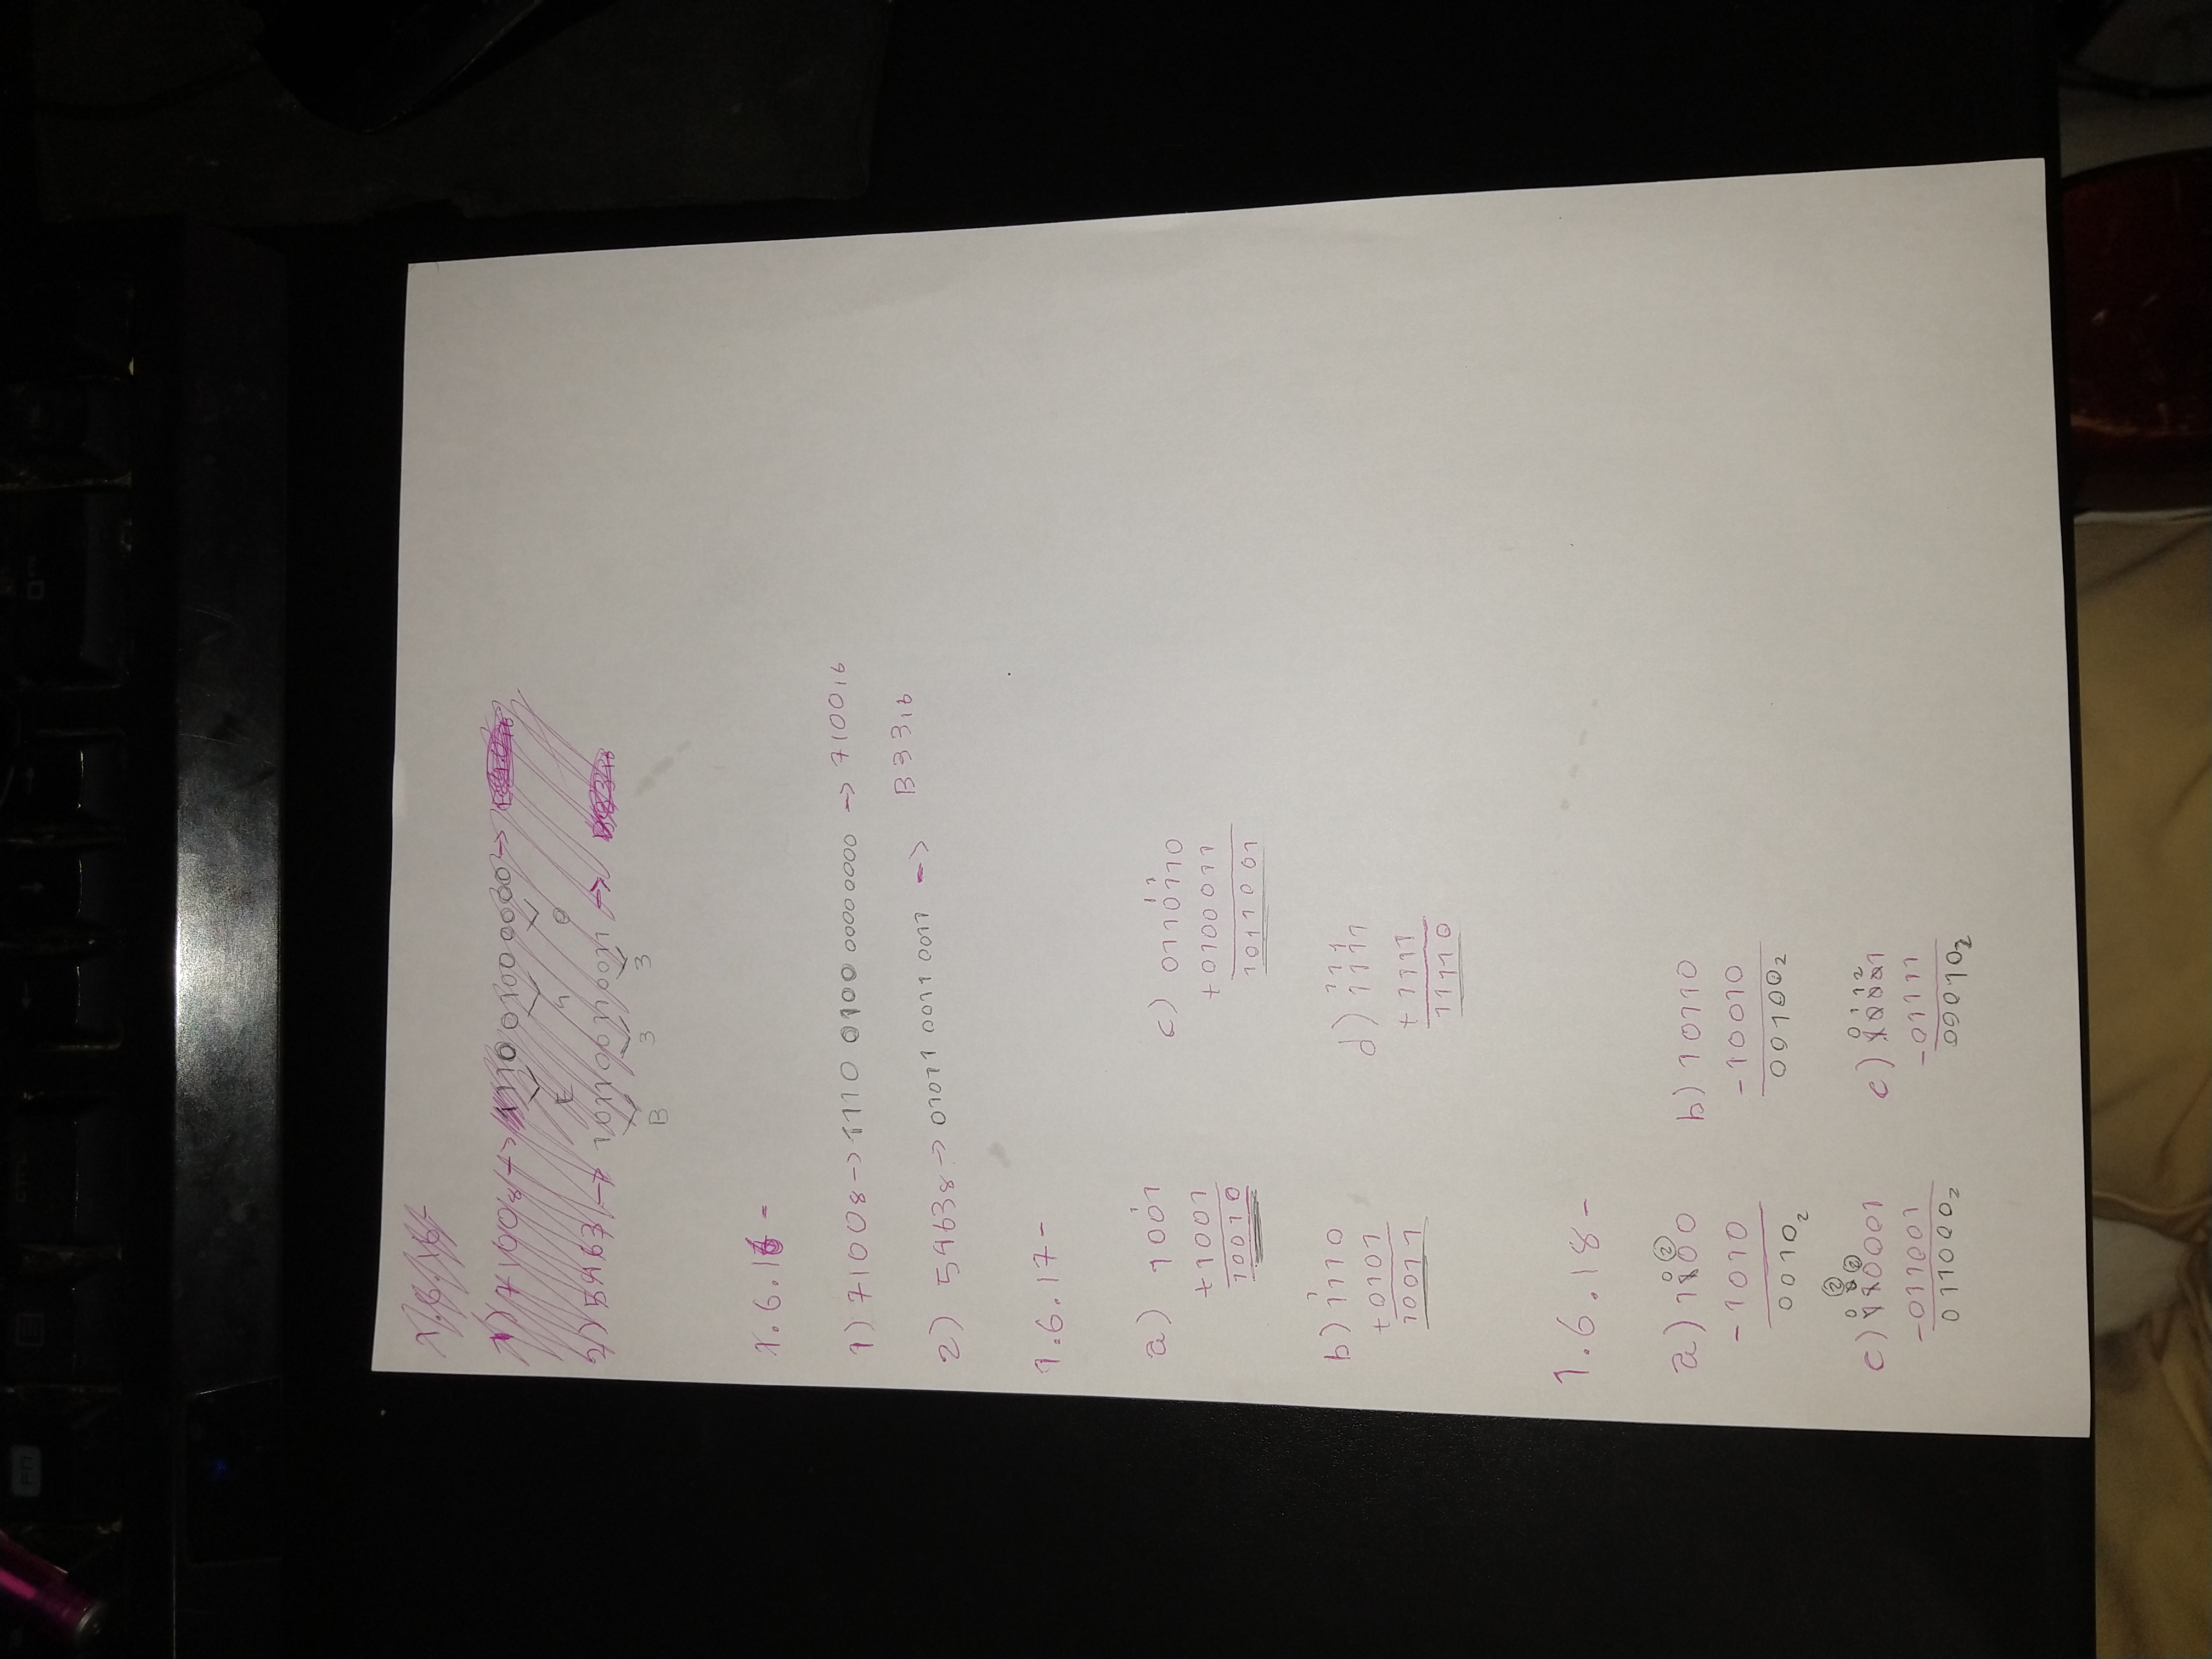 Fn
1.6.16-
1) 7100₈ -> 1110 0100 0000 ->
E 4 0
2) 5463 -> 1011 0011 0011 -> B33₁₆
B 3 3
1.6.16 -
1) 7100₈ -> 1110 0100 00000000 -> 7100₁₆
2) 5463₈ -> 01011 0011 0011 -> B33₁₆
1.6.17-
1
a) 1001
+1001
10010
1 1
c) 0110110
+0100011
1011001
1
b) 1110
+0101
10011
1 1 1
d) 1111
+ 1111
11110
1.6.18-
0 2
a) 1100
-1010
0010₂
b) 10110
-10010
00100₂
2
0 0 2
c) 110001
-011001
011000₂
0 1 1 2
c) 10001
-01111
00010₂